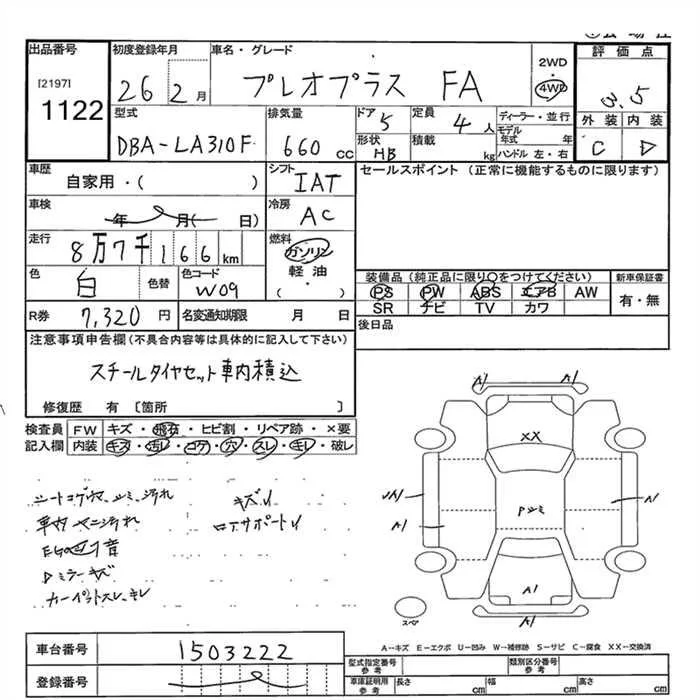 出品番号
[2197]
1122
初度登録年月
26 2月
車名・グレード
プレオプラス FA
2WD
・
4WD
評価点
3.5
型式
DBA-LA310F
排気量
660 CC
ドア
5
定員
4人
形状
HB
積載
kg
ディーラー・並行
モデル年式 年
ハンドル 左・右
外装 内装
C D
車歴
自家用・( )
シフト
IAT
セールスポイント (正常に機能するものに限ります)
車検
年 月( 日)
冷房
AC
走行
8万7千166km
燃料
ガソリン
軽油
・( )
色
白
色替
色コード
W09
装備品 (純正品に限り○をつけてください)
PS PW ABS エアB AW
SR ナビ TV カワ
新車保証書
有・無
R券
7,320円
名変通知期限 月 日
後日品
注意事項申告欄(不具合内容等は具体的に記入して下さい)
スチールタイヤセット車内積込
修復歴 有 〔箇所 〕
検査員 FW キズ・飛石・ヒビ割・リペア跡・×要
記入欄 内装 キズ・汚レ・コゲ・穴・スレ・キレ・破レ
キズ
車内
汚レ
Dミラーキズ
カーペットスレ、キレ
ロアサポート
A1
A1
XX
A1
A1
A1
A1
スペ
A-キズ E-エクボ U-凹み W-補修跡 S-サビ C-腐食 XX-交換済
車台番号
1503222
登録番号
型式指定番号
参考
類別区分番号
参考
車庫証明用
参考
長さ cm
幅 cm
高さ cm